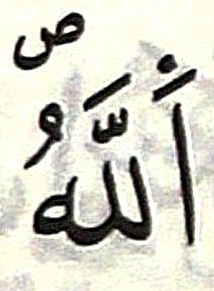 اَللَّهُ ص